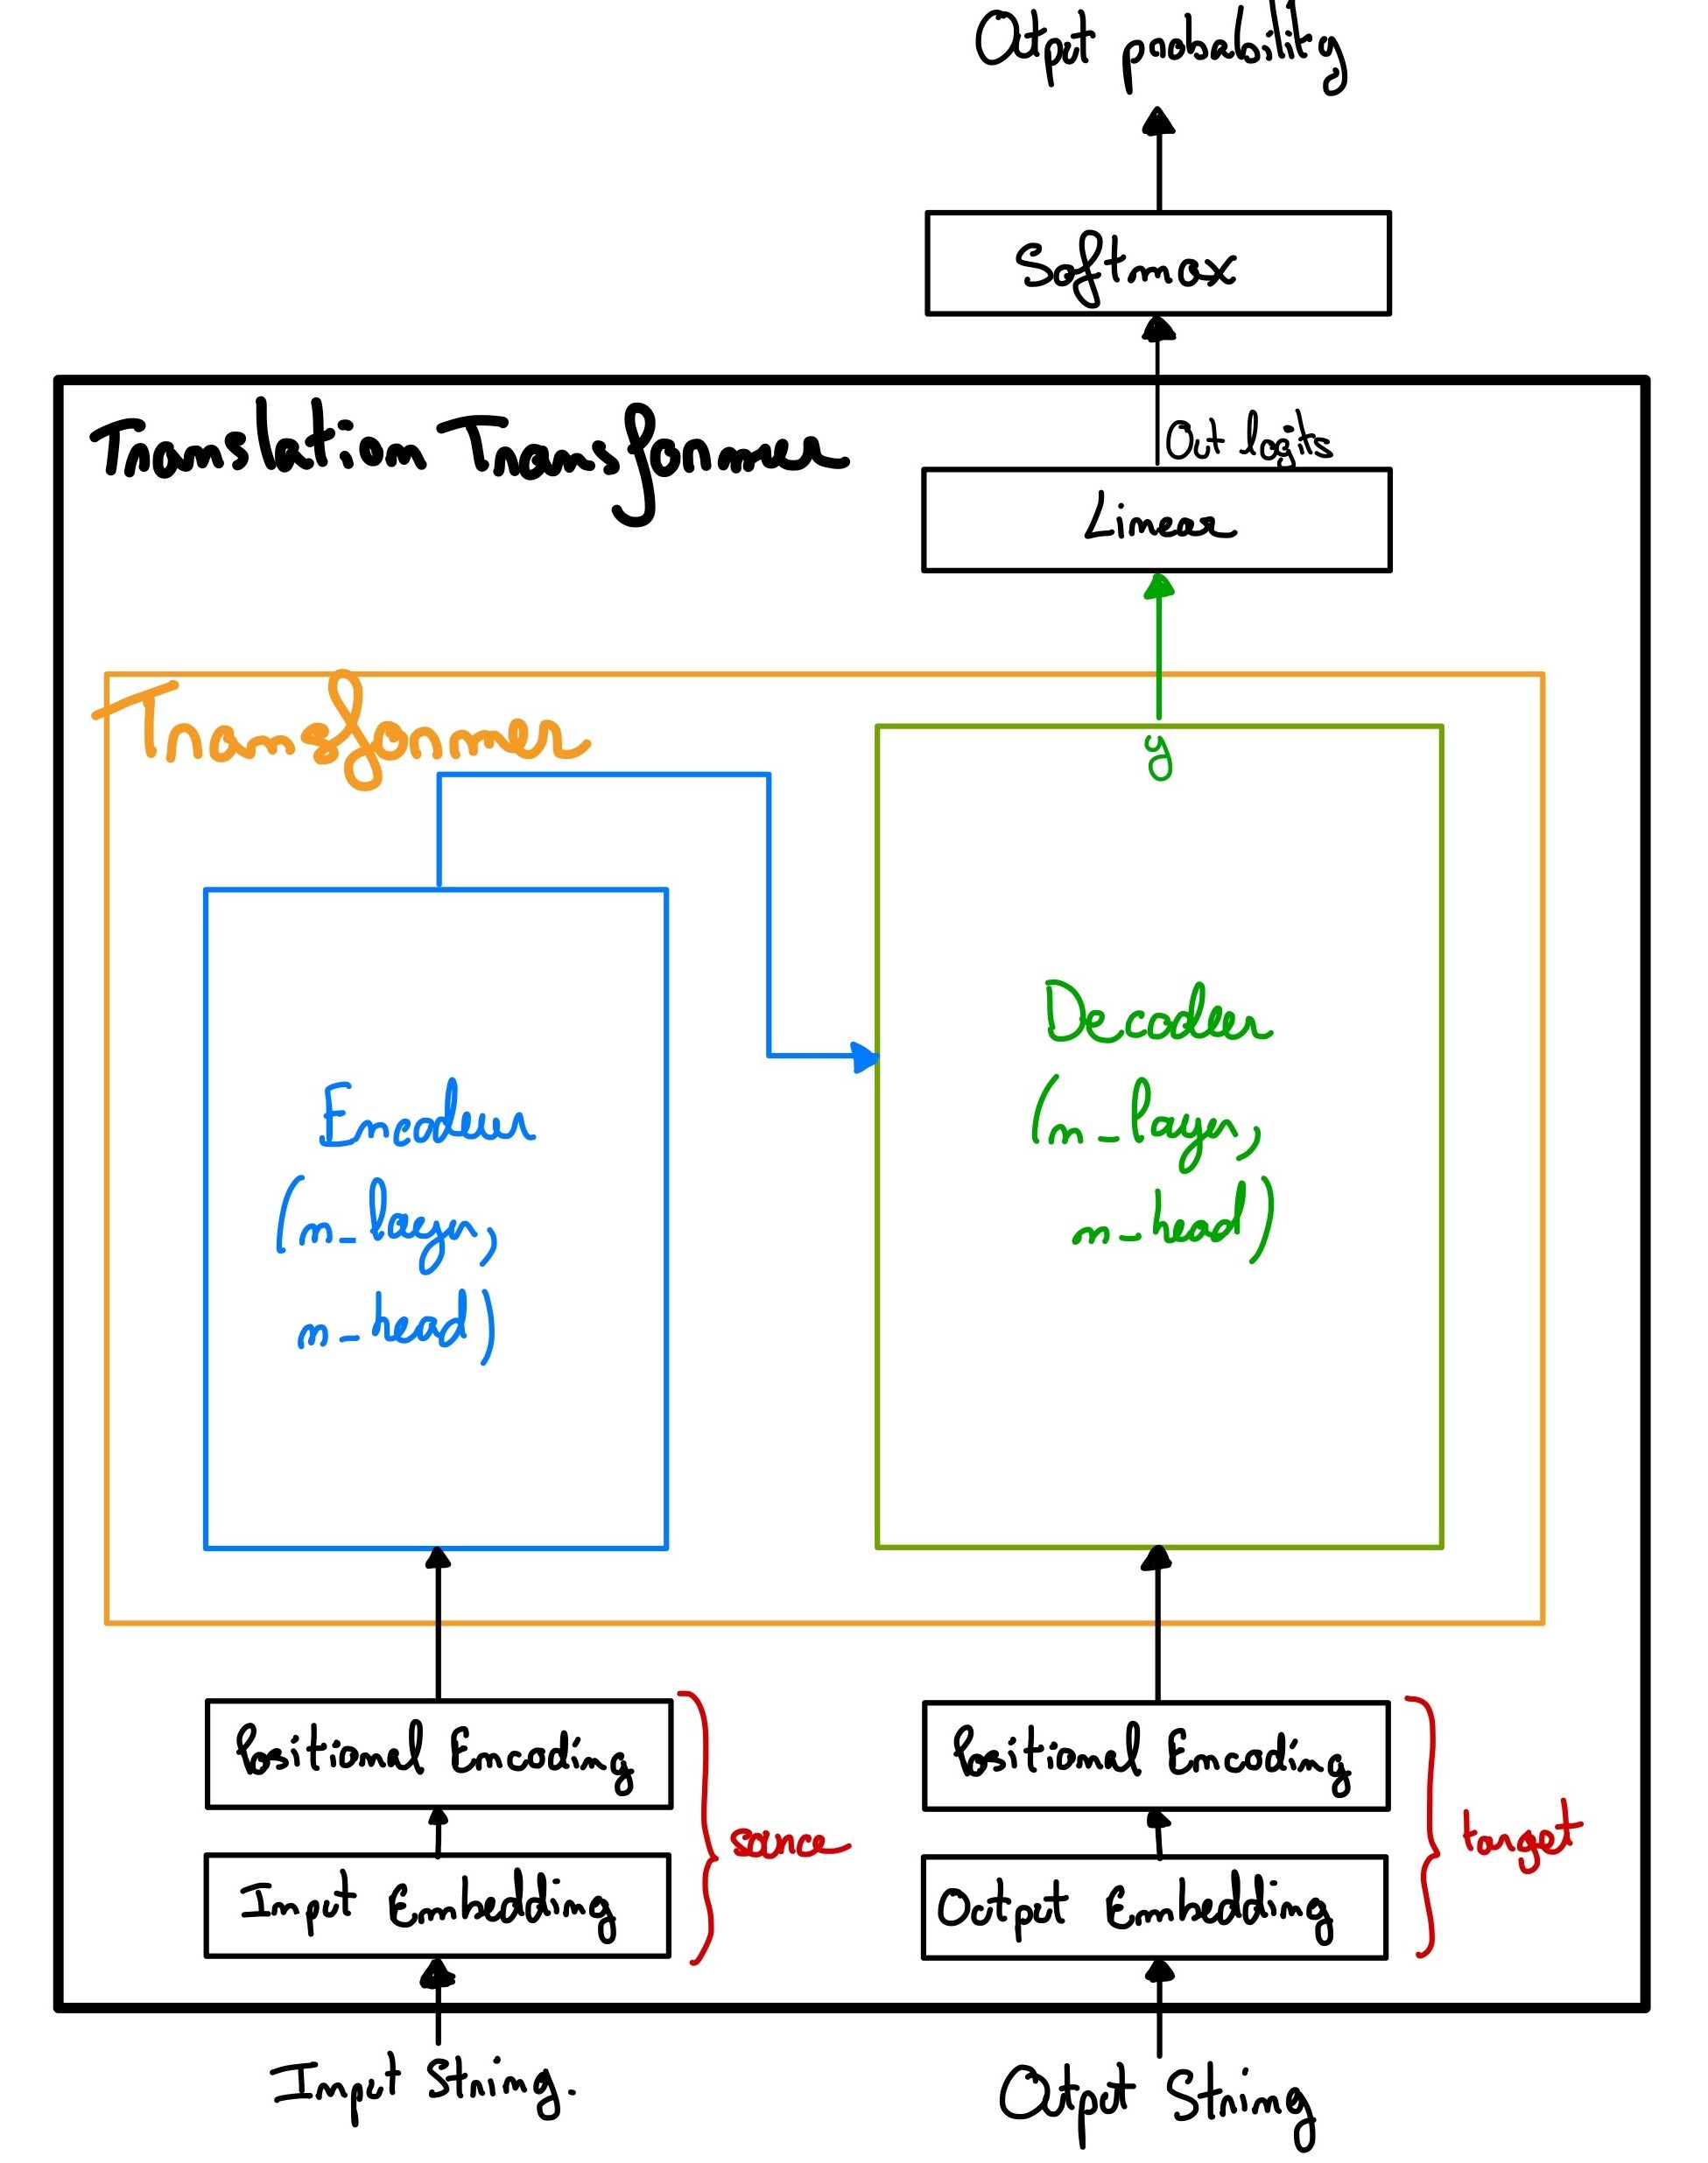 Output probability
Softmax
Out logits
Translation Transformer
Linear
Transformer
y
Encoder
(n_layer,
n_head)
Decoder
(n_layer,
n_head)
Positional Encoding
Input Embedding
source
Positional Encoding
Output Embedding
target
Input String.
Output String